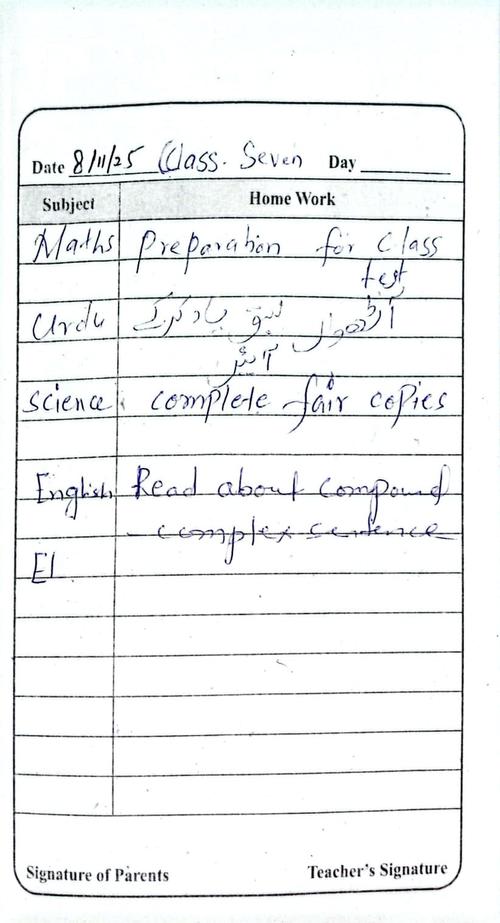 Date 8/11/25 Class. Seven Day
Subject Home Work
Maths Preparation for Class
test
Urdu آٹھواں سبق یاد کرکے
آئیں
Science complete fair copies
English Read about compound
complex sentence
El
Signature of Parents Teacher's Signature